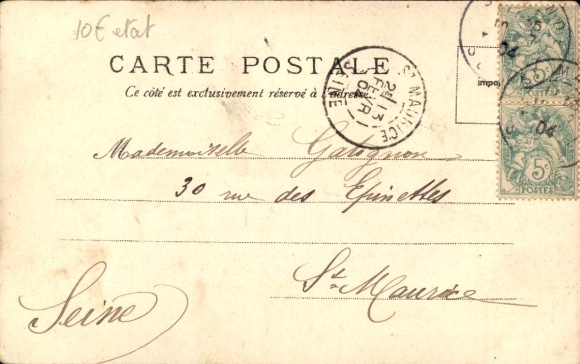 10€ etat
CARTE POSTALE
Ce côté est exclusivement réservé à l'adresse
ST MAURICE
13
FEVR
04
SEINE
04
5
POSTES
04
5
POSTES
Mademoiselle
30 rue des Epinettes
St Maurice
Seine